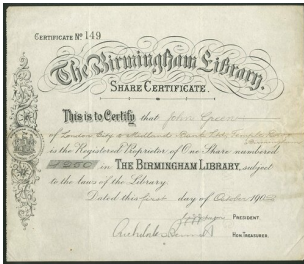 CERTIFICATE Nº 149
The Birmingham Library.
SHARE CERTIFICATE.
This is to Certify that John
of London City & Midland Bank
is the Registered Proprietor of One Share numbered
in THE BIRMINGHAM LIBRARY, subject
to the laws of the Library.
Dated this first day of October 190
PRESIDENT.
HON. TREASURER.